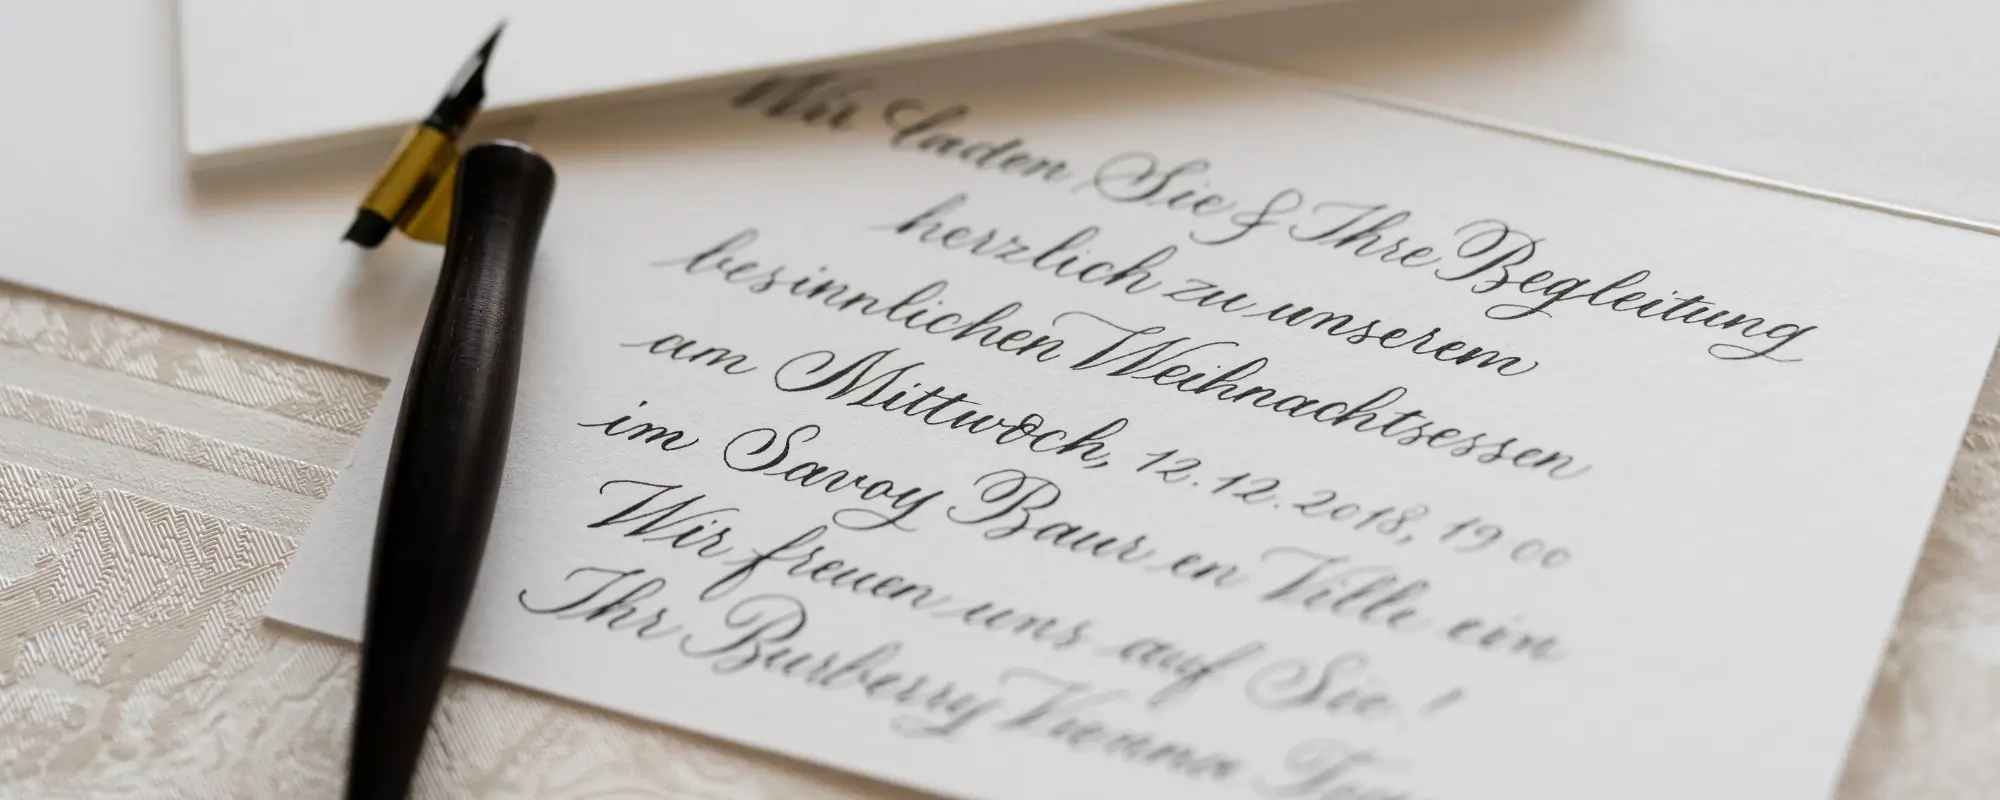 Wir laden Sie & Ihre Begleitung
herzlich zu unserem
besinnlichen Weihnachtsessen
am Mittwoch, 12.12.2018, 19 00
im Savoy Baur en Ville ein
Wir freuen uns auf Sie!
Ihr Burberry Vienna